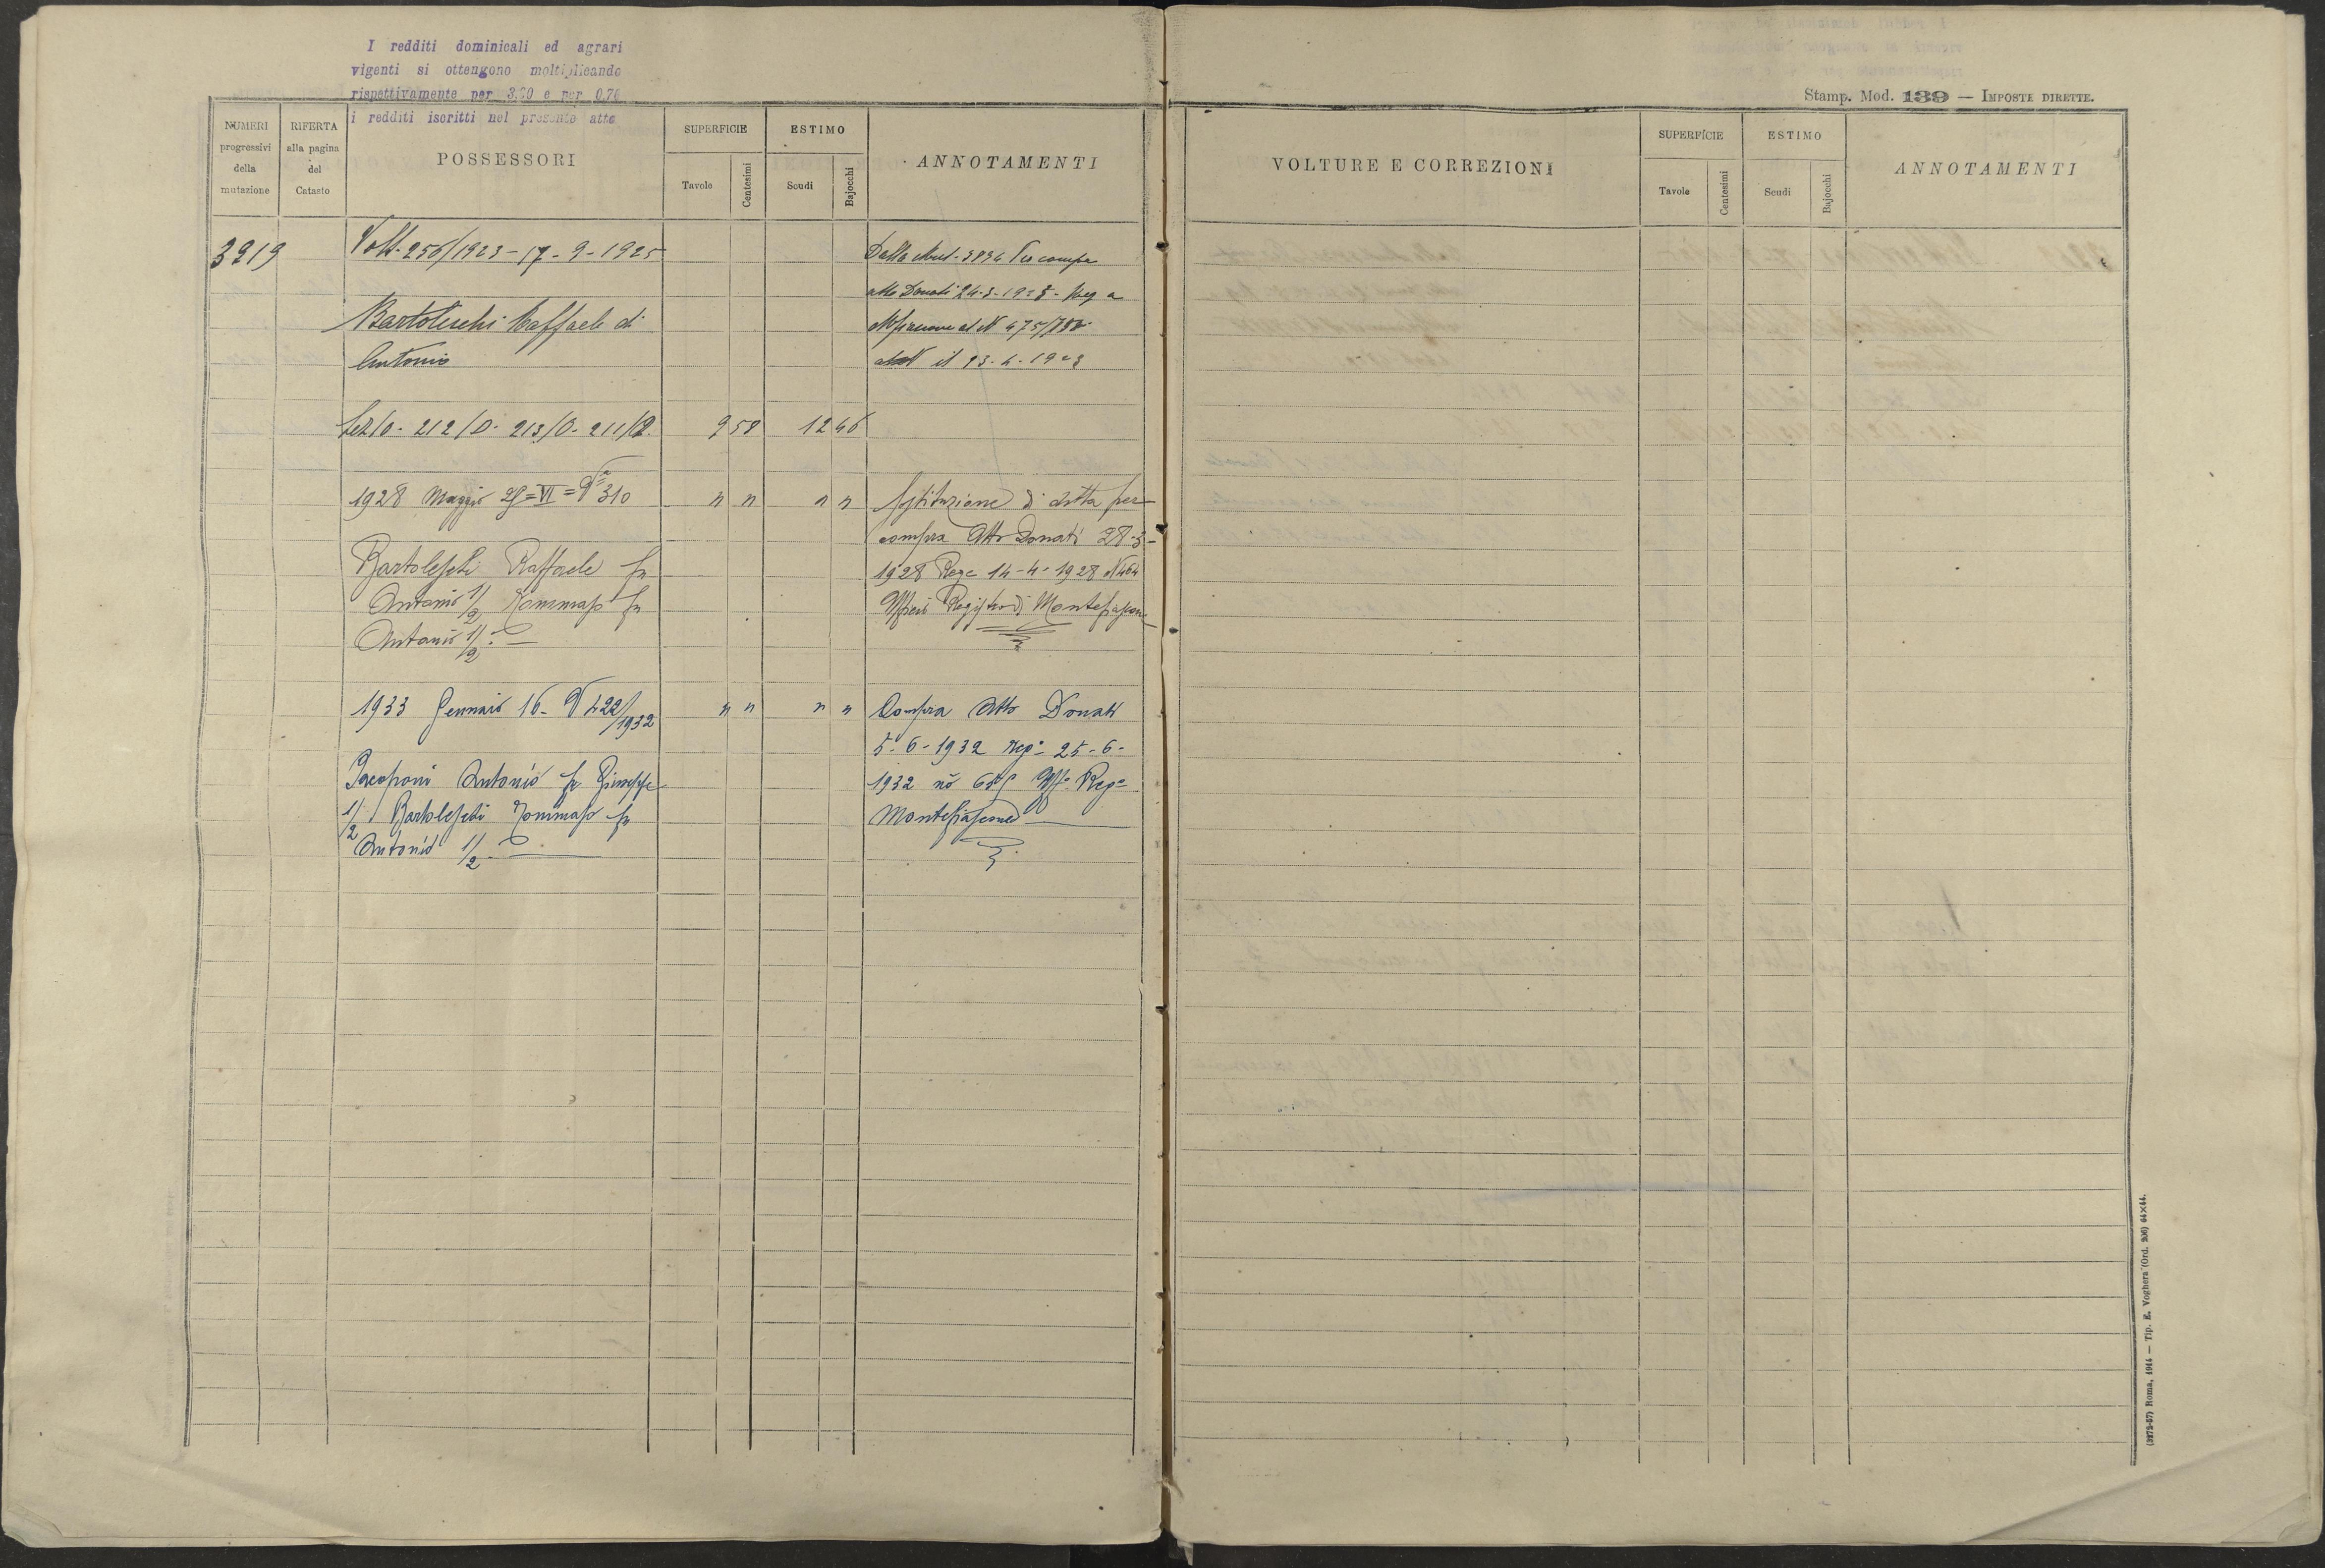 I redditi dominicali ed agrari
vigenti si ottengono moltiplicando
rispettivamente per 3.20 e per 0.70
i redditi iscritti nel presente atto
Stamp. Mod. 139 — IMPOSTE DIRETTE.
NUMERI progressivi della mutazione
RIFERTA alla pagina del Catasto
POSSESSORI
SUPERFICIE
Tavole
Centesimi
ESTIMO
Scudi
Bajocchi
ANNOTAMENTI
VOLTURE E CORREZIONI
SUPERFICIE
Tavole
Centesimi
ESTIMO
Scudi
Bajocchi
ANNOTAMENTI
3919
Volt. 256/1923 - 17 - 9 - 1925
Dalla Mut. 3894 Per compa
atto Donati 24-3-1923 - Reg a
Bartoleschi Raffaele di
Antonio
al N 475/782
il 23. 4. 1923
Sez 10 - 212/0 - 213/0 - 211/2.
9 58
12 46
1928 Maggio 29 = VI = Va 310
" " " "
Istituzione di ditta per
compra Atto Donati 28-3-
1928 Rega 14-4-1928 N 464
Ufficio Registro di Montefiascone
Bartoleschi Raffaele fu
Antonio 1/2 Tommaso fu
Antonio 1/2.
1933 Gennaio 16 - V 422/1932
" " " "
Compra Atto Donati
5-6-1932 Rega 25-6-
1932 no Uffo Rega
Montefiascone
Jacoponi Antonio fu Giuseppe
1/2 Bartoleschi Tommaso fu
Antonio 1/2.
(3272-57) Roma, 1914 — Tip. E. Voghera (Ord. 206) 64×44.